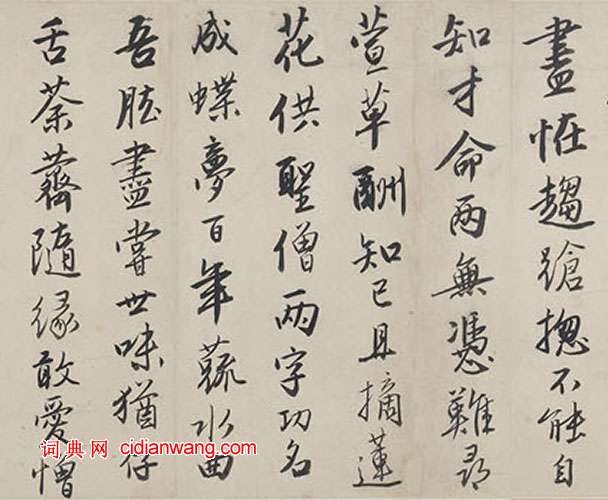 盡恠趨蹌揔不能自
知才命兩無憑難尋
萱草酬知己且摘蓮
花供聖僧兩字功名
成蝶夢百年蔬水曲
吾肱盡嘗世味猶存
舌荼薺隨緣敢愛憎
词典网 cidianwang.com